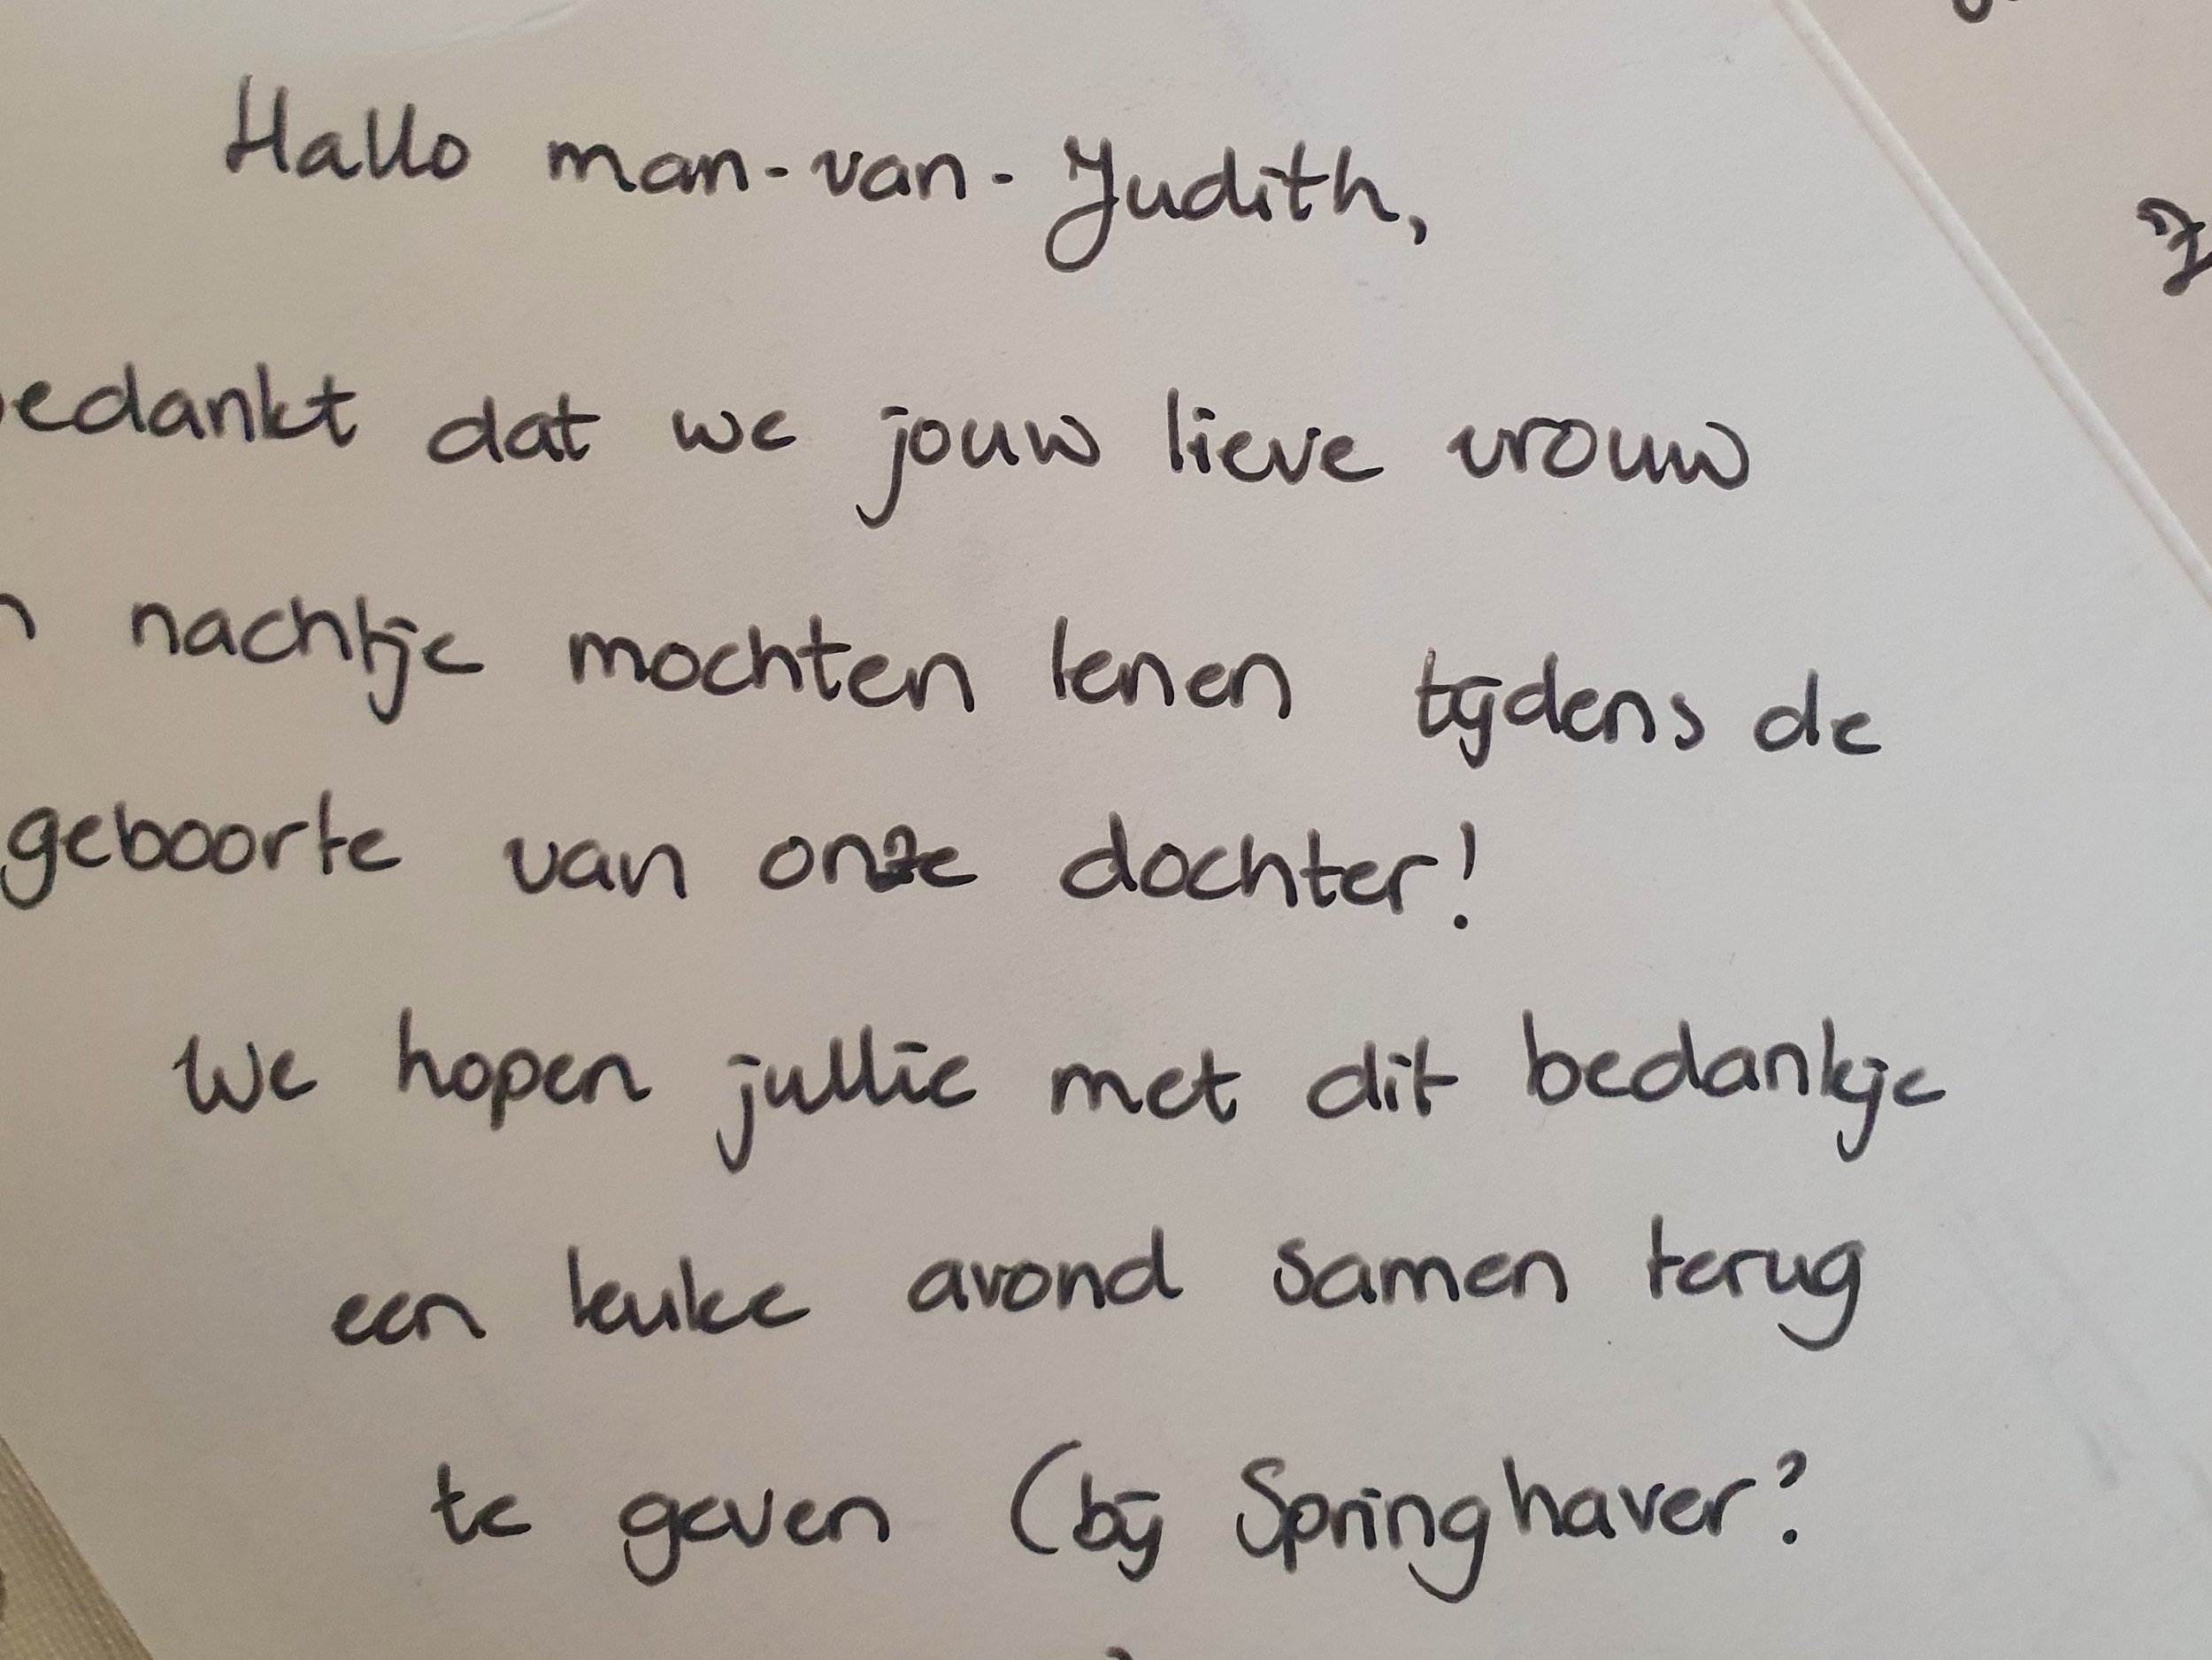 Hallo man-van-Judith,
edankt dat we jouw lieve vrouw
n nachtje mochten lenen tijdens de
geboorte van onze dochter!
We hopen jullie met dit bedankje
een leuke avond samen terug
te geven (bij Springhaver?